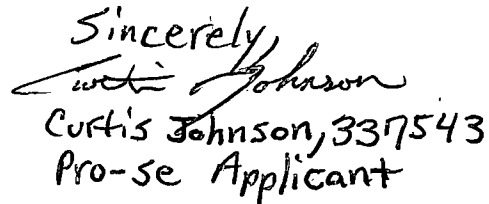 Sincerely,
Curtis Johnson
Curtis Johnson, 337543
Pro-se Applicant